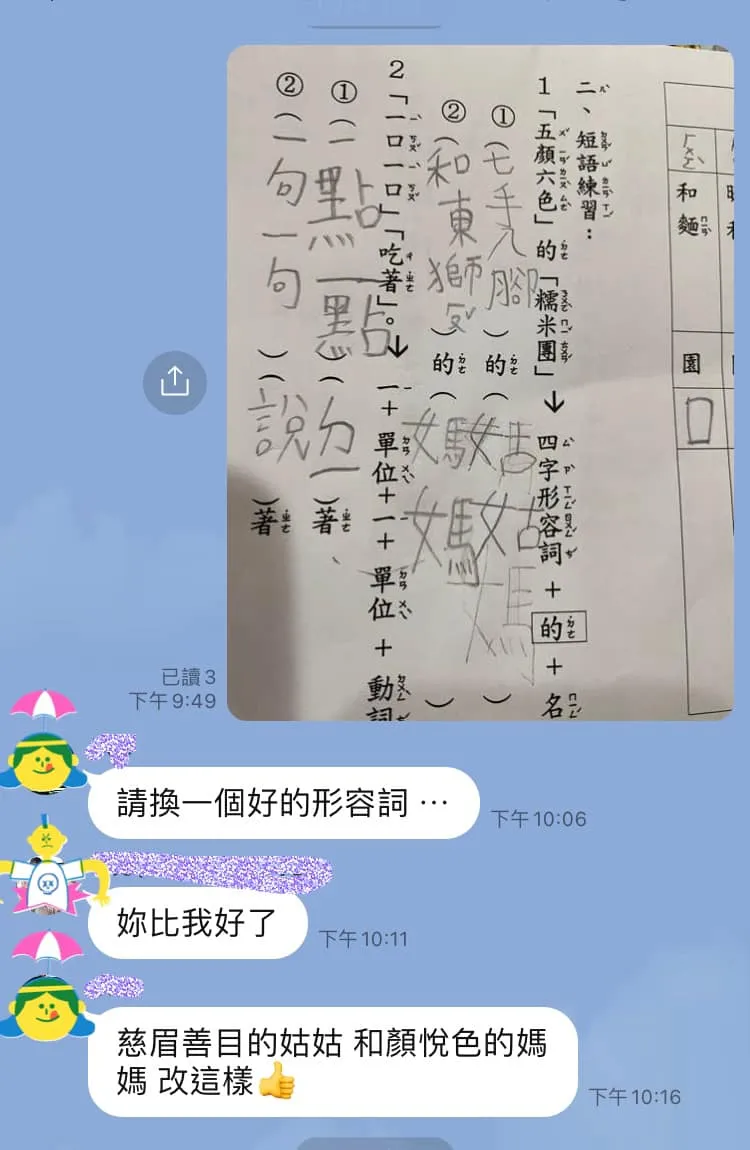 和麵
園
二、短語練習：
1「五顏六色」的「糯米團」↓四字形容詞＋的＋名
①（毛手腳）的（姑姑）
②（和東獅）的（媽媽）
2「一口一口」「吃著」。↓一＋單位＋一＋單位＋動詞
①（一點一點）（ㄉㄧ）著
②（一句一句）（說）著
已讀 3
下午 9:49
請換一個好的形容詞 ⋯
下午 10:06
妳比我好了
下午 10:11
慈眉善目的姑姑 和顏悅色的媽
媽 改這樣👍
下午 10:16